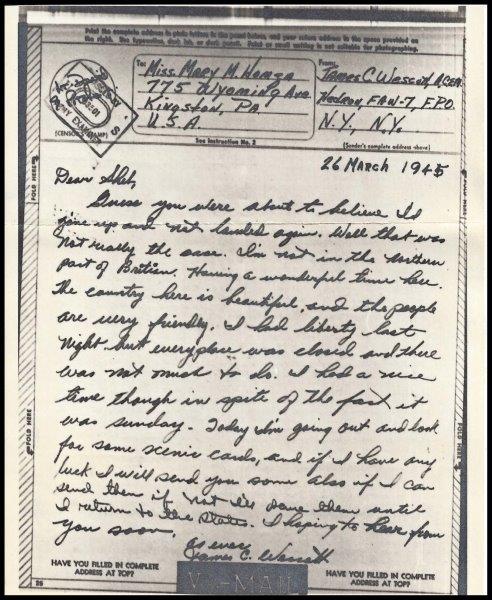 Print the complete address in plain letters in the panel below, and your return address in the space provided on
the right. Use typewriter, dark ink, or dark pencil. Faint or small writing is not suitable for photographing.
To:
Miss. Mary M. Homza
775 Wyoming Ave
Kingston, Pa.
U.S.A.
From:
James C. Wescott, ACEM
Hedron, FAW-7, F.P.O.
N.Y., N.Y.
(CENSOR'S STAMP)
See Instruction No. 2
(Sender's complete address above)
26 March 1945
Dear
Guess you were about to believe I'd
give up and not landed again. Well that was
not really the case. I'm not in the Northern
part of Britian. Having a wonderful time here.
The country here is beautiful, and the people
are very friendly. I had liberty last
night but everyplace was closed and there
was not much to do. I had a nice
time though in spite of the fact it
was sunday. Today I'm going out and look
for some scenic cards, and if I have any
luck I will send you some also if I can
send them if not I'll save them until
I return to the States. I hoping to hear from
you soon.
as ever
James C. Wescott
HAVE YOU FILLED IN COMPLETE
ADDRESS AT TOP?
V-MAIL
HAVE YOU FILLED IN COMPLETE
ADDRESS AT TOP?
FOLD HERE
FOLD HERE
FOLD HERE
FOLD HERE